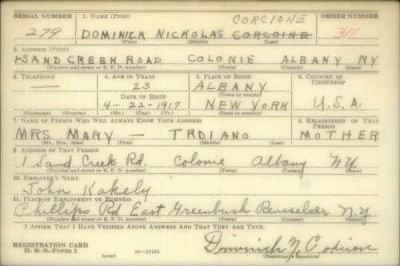 SERIAL NUMBER 1. NAME (Print) CORCIONE ORDER NUMBER
279 DOMINICK NICKOLAS CORCOINE 311
(First) (Middle) (Last)
2. ADDRESS (Print)
1 SAND CREEK ROAD COLONIE ALBANY NY
(Number and street or R. F. D. number) (Town) (County) (State)
3. TELEPHONE 4. AGE IN YEARS 5. PLACE OF BIRTH 6. COUNTRY OF CITIZENSHIP
— 23 ALBANY
DATE OF BIRTH (Town or county)
4-22-1917 NEW YORK U.S.A.
(Exchange) (Number) (Mo.) (Day) (Yr.) (State or country)
7. NAME OF PERSON WHO WILL ALWAYS KNOW YOUR ADDRESS 8. RELATIONSHIP OF THAT PERSON
MRS. MARY — TROIANO MOTHER
(Mr., Mrs., Miss) (First) (Middle) (Last)
9. ADDRESS OF THAT PERSON
1 Sand Creek Rd. Colonie Albany NY
(Number and street or R. F. D. number) (Town) (County) (State)
10. EMPLOYER'S NAME
John Kakely
11. PLACE OF EMPLOYMENT OR BUSINESS
Phillips Rd East Greenbush Rensselaer N.Y.
(Number and street or R. F. D. number) (Town) (County) (State)
I AFFIRM THAT I HAVE VERIFIED ABOVE ANSWERS AND THAT THEY ARE TRUE.
REGISTRATION CARD
D. S. S. Form 1 (over) 16-17105 Dominick N